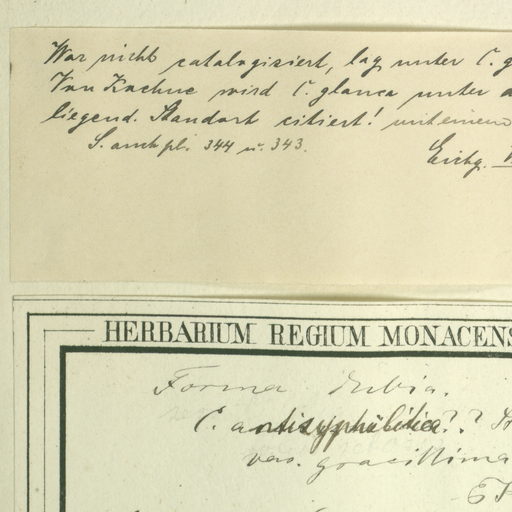 War nicht catalogisiert, lag unter C. g
Von Koehne wird C. glauca unter
liegend. Standort citiert! mit einem
S. auch pl. 344 u. 343.
Eichg.
HERBARIUM REGIUM MONACENS
Forma dubia.
C. antisyphilitica??
var. gracillima